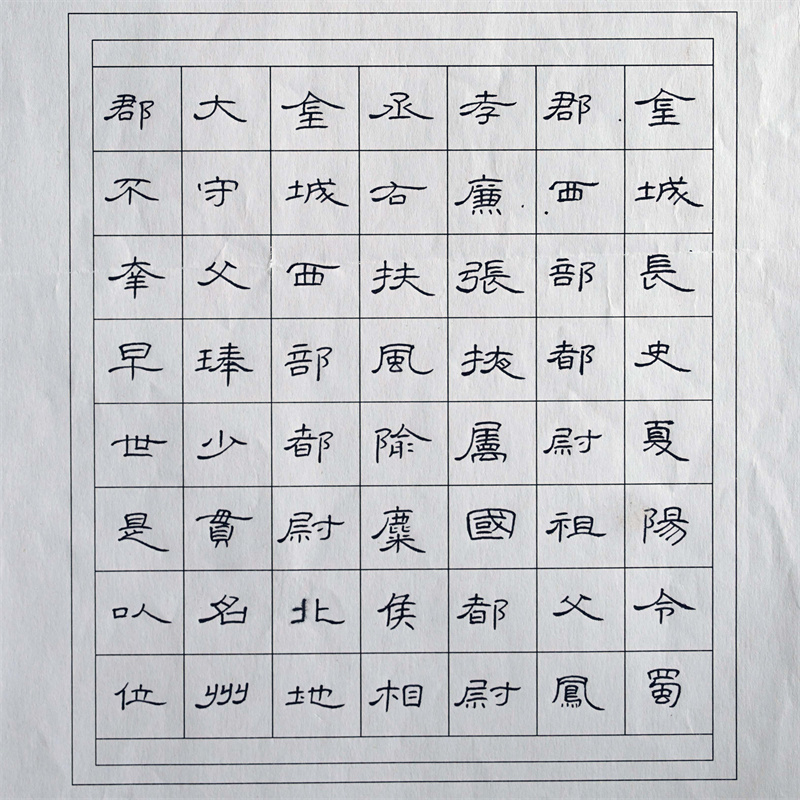 金城長史夏陽令蜀
郡西部都尉祖父鳳
孝廉張掖屬國都尉
丞右扶風隃麋侯相
金城西部都尉北地
大守父琫少貫名州
郡不幸早世是以位